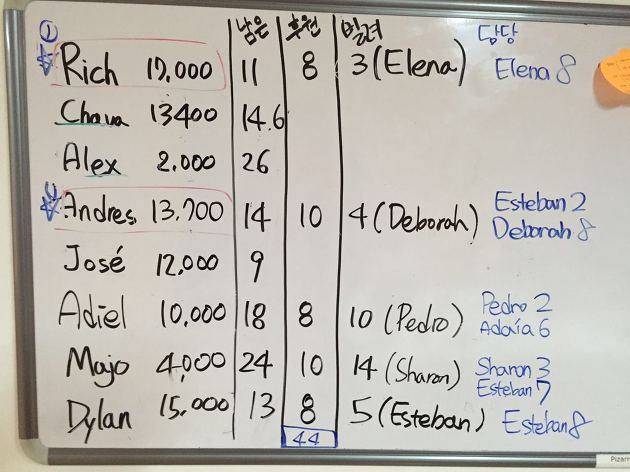 남은 후원 빌려 담당
① Rich 17,000 11 8 3 (Elena) Elena 8
Chava 13400 14.6
Alex 2,000 26
Andres 13,700 14 10 4 (Deborah) Esteban 2
Deborah 8
José 12,000 9
Adiel 10,000 18 8 10 (Pedro) Pedro 2
Adaía 6
Majo 4,000 24 10 14 (Sharon) Sharon 3
Esteban 7
Dylan 15,000 13 8 5 (Esteban) Esteban 8
44